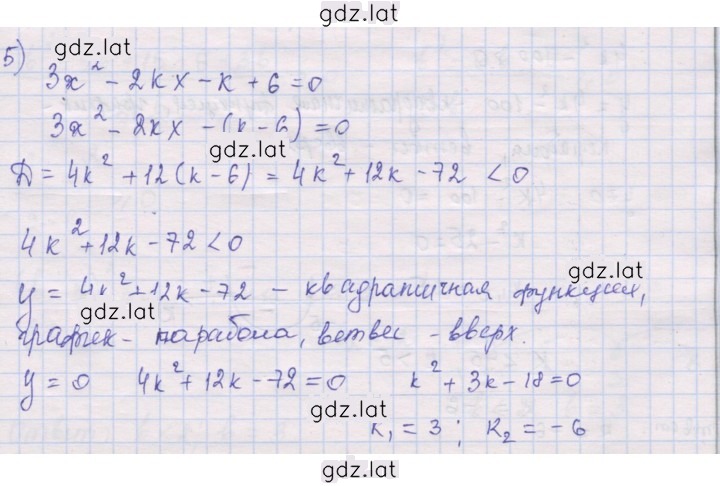 gdz.lat
5)
gdz.lat
3x² - 2kx - k + 6 = 0
3x² - 2kx - (k - 6) = 0
gdz.lat
D = 4k² + 12(k - 6) = 4k² + 12k - 72 < 0
4k² + 12k - 72 < 0
gdz.lat
y = 4k² + 12k - 72 - квадратичная функция,
gdz.lat
график - парабола, ветви - вверх.
y = 0 4k² + 12k - 72 = 0 k² + 3k - 18 = 0
gdz.lat
k₁ = 3; k₂ = -6
gdz.lat